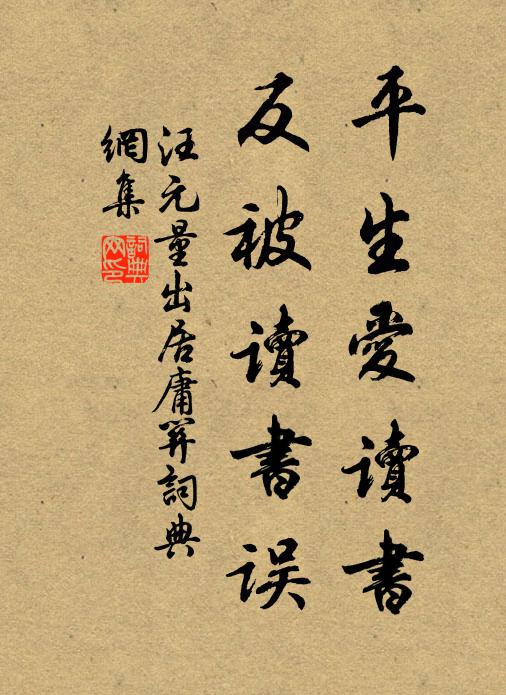 平生愛讀書
反被讀書誤
汪元量出居庸关詞典
網集
詞典網印